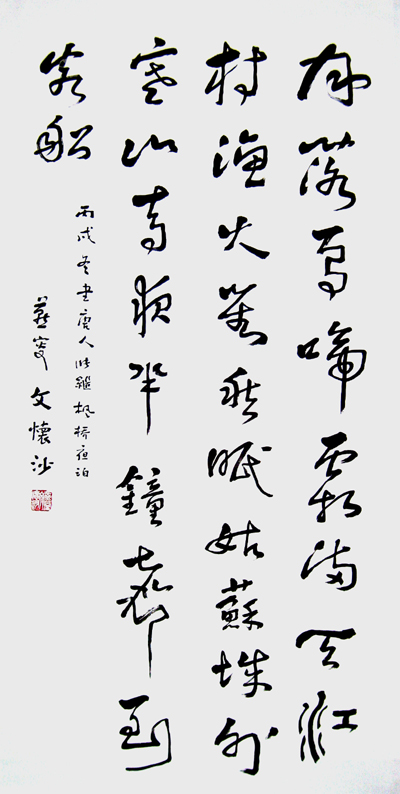 月落烏啼霜滿天江
村漁火對愁眠姑蘇城外
寒山寺夜半鐘聲到
客船
丙戌冬書唐人張繼楓橋夜泊
燕叟文懷沙